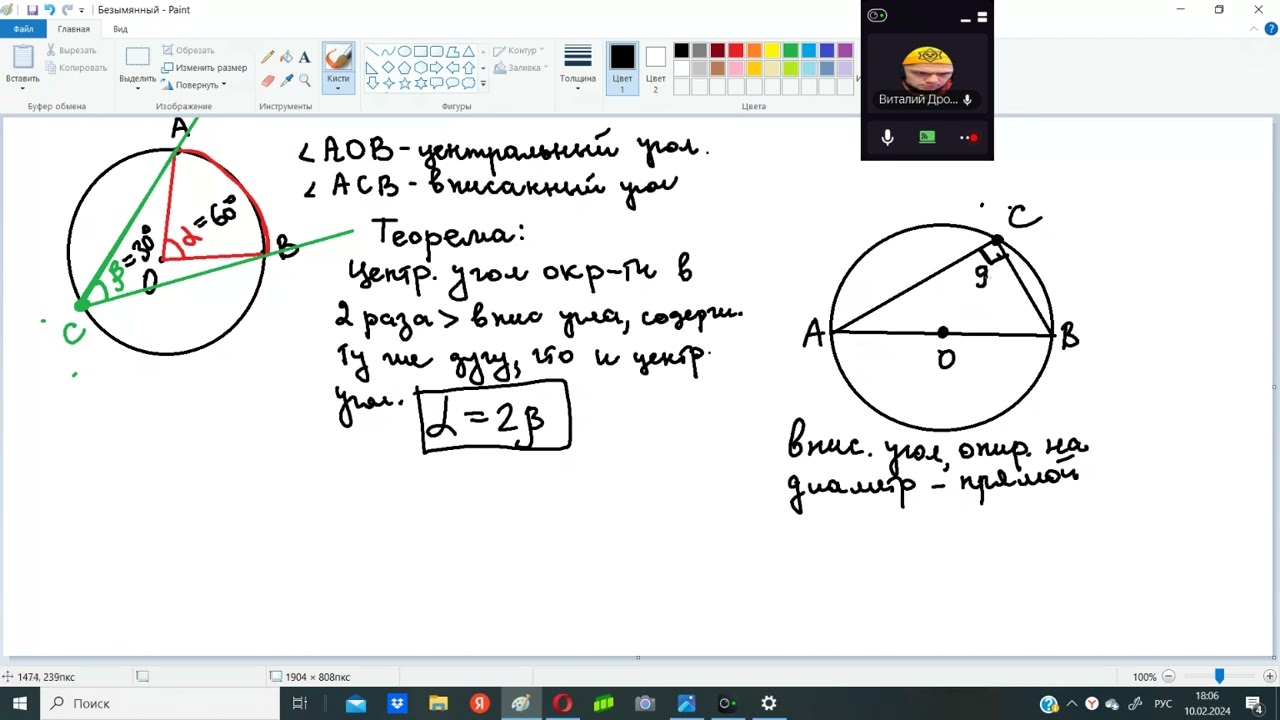 Безымянный - Paint
Файл
Главная
Вид
Вставить
Вырезать
Копировать
Буфер обмена
Выделить
Обрезать
Изменить разм
Повернуть
Изображение
Инструменты
Кисти
Контур
Заливка
Фигуры
Толщина
Цвет 1
Цвет 2
Цвета
Виталий Дро...
A
B
C
O
β=30°
α=60°
∠AOB - центральный угол.
∠ACB - вписанный угол
Теорема:
Центр. угол окр-ти в
2 раза > впис угла, содерж.
ту же дугу, что и центр.
угол.
α = 2β
C
9
A
B
O
впис. угол, опир. на
диаметр - прямой
1474, 239пкс
1904 × 808пкс
100%
Поиск
РУС
18:06
10.02.2024
4